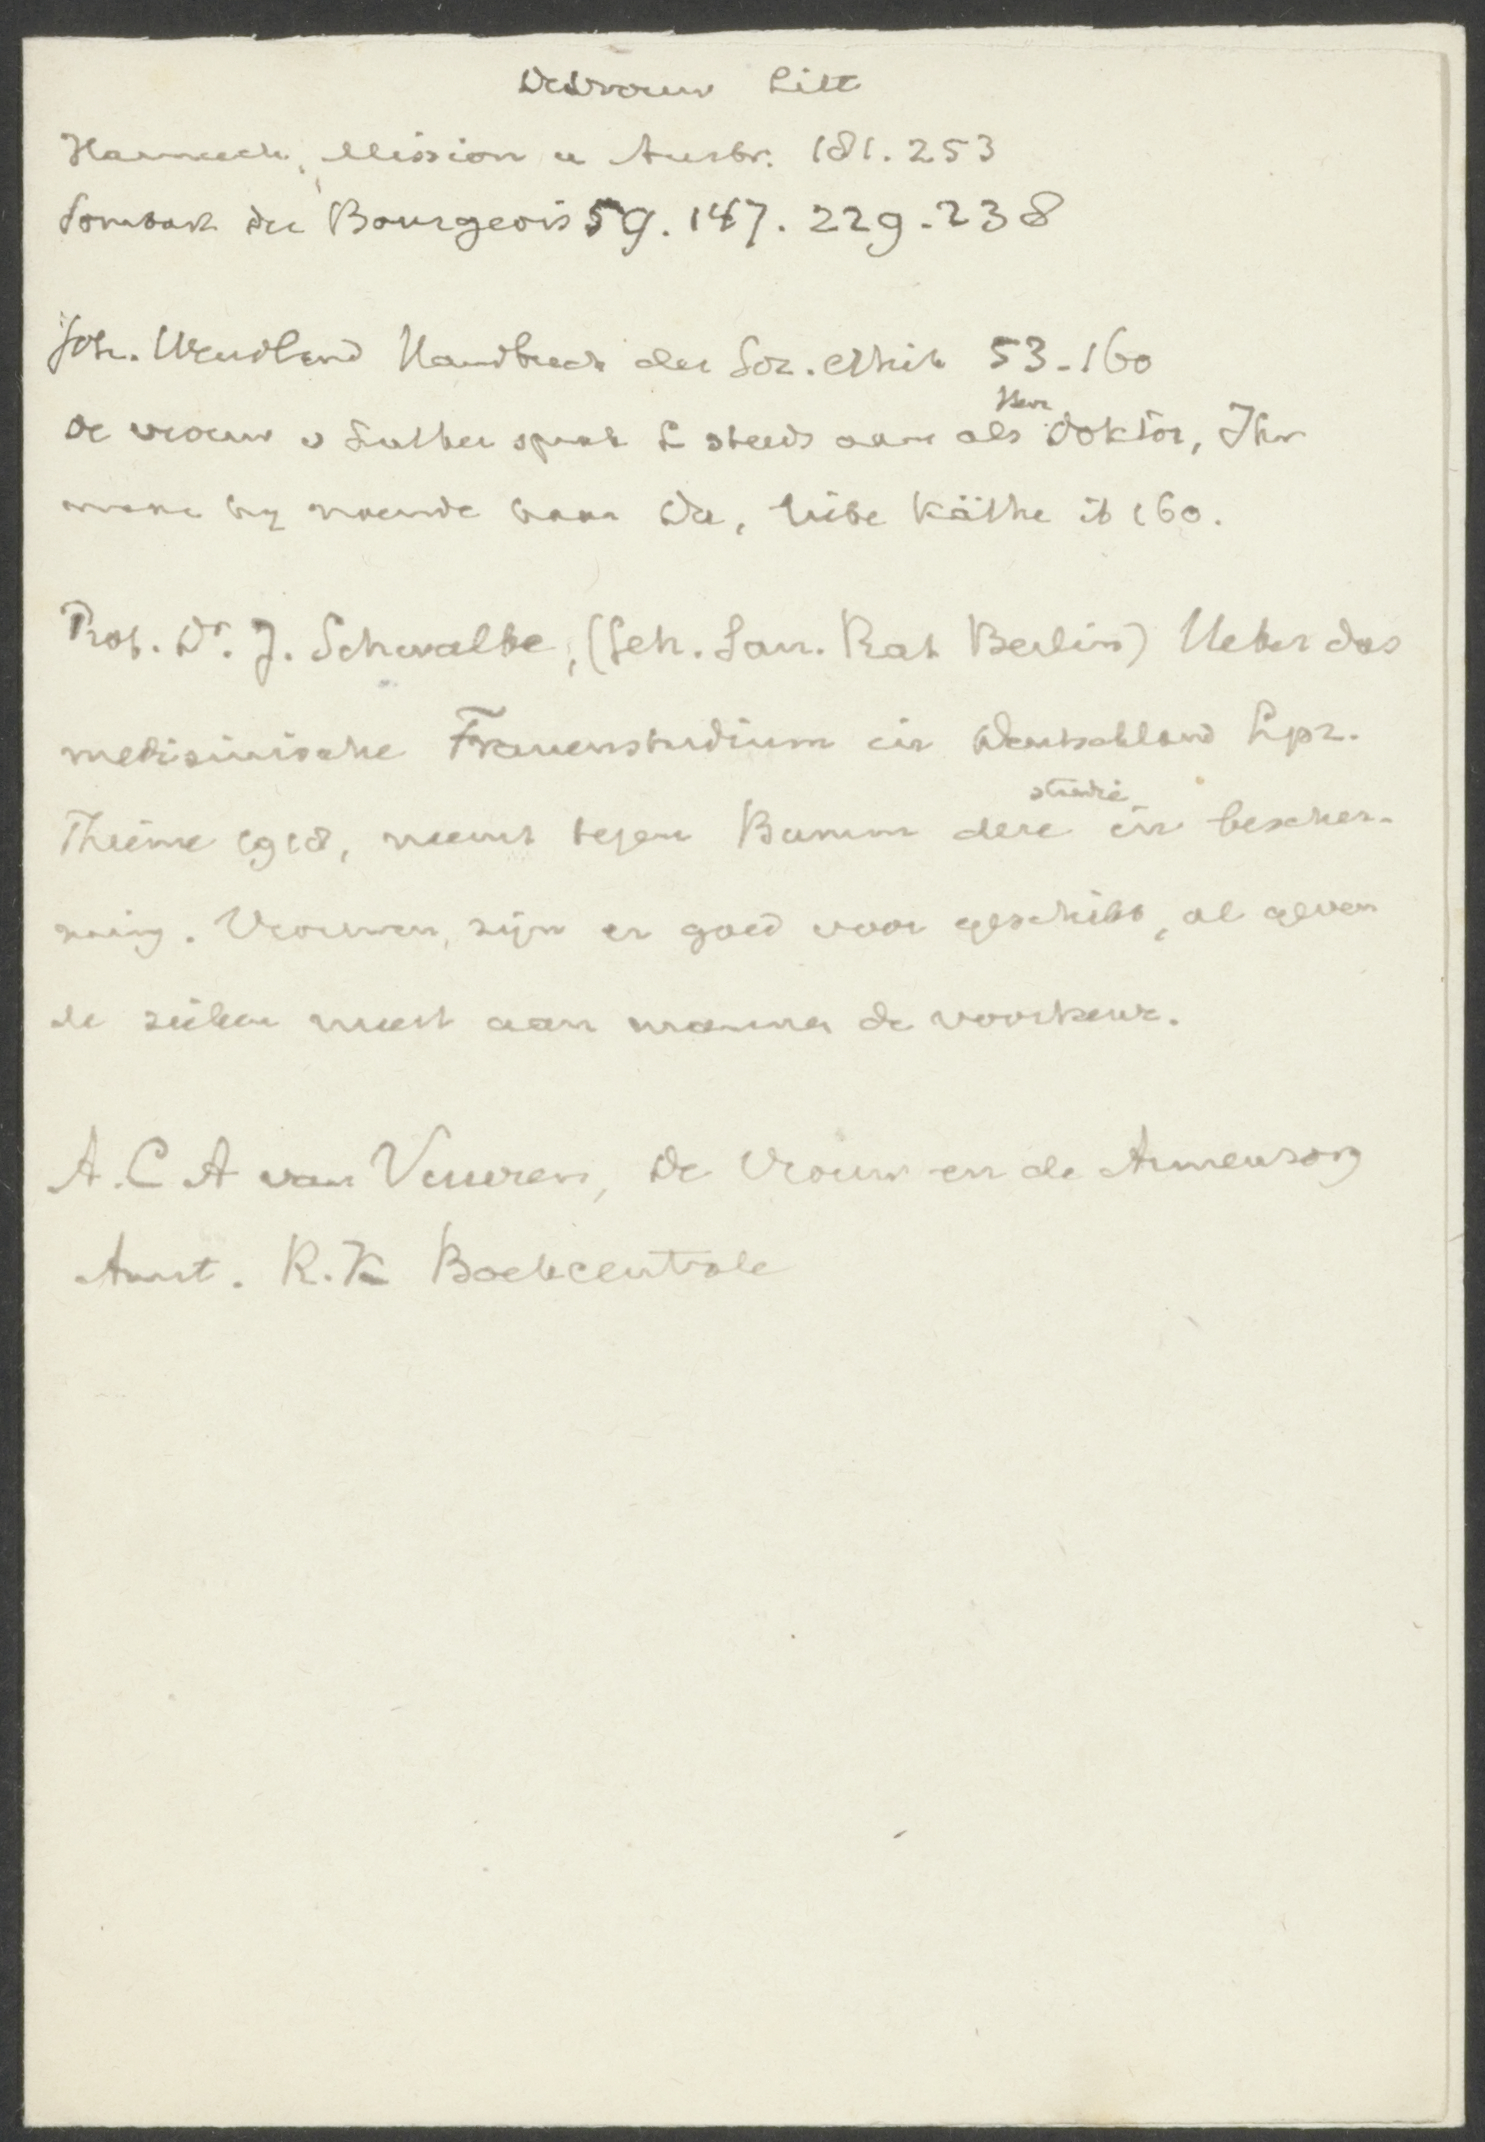 De Vrouw Litt
Harnack, Mission u Ausbr. 181. 253
Sombart der Bourgeois 59. 147. 229. 238
Joh. Wendland Handbuch der Soz. ethik 53-160
de vrouw v Luther sprak L steeds aan als Herr Doktor, Ihr
maar hij noemde haar Du, liebe Käthe ib 160.
Prof. Dr. J. Schwalbe, (Geh. San. Rat Berlin) Ueber das
medizinische Frauenstudium in Deutschland Lpz.
Thieme 1918, neemt tegen Bumm deze studie in bescher-
ming. Vrouwen, zijn er goed voor geschikt, al geven
de zieken meest aan mannen de voorkeur.
A. C. A van Vuuren, De Vrouw en de Armenzorg
Amst. R. K Boekcentrale